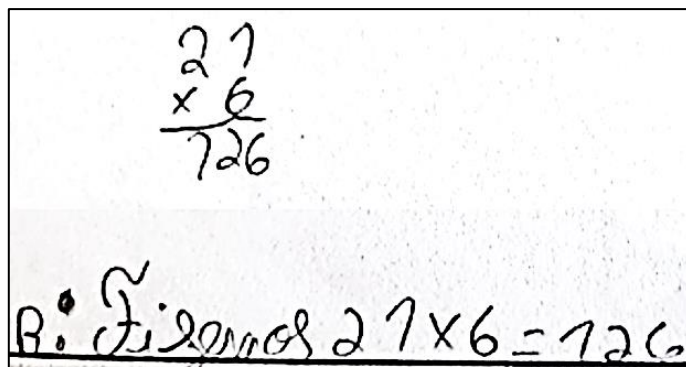 21
x 6
126
R: Fizemos 21x6=126